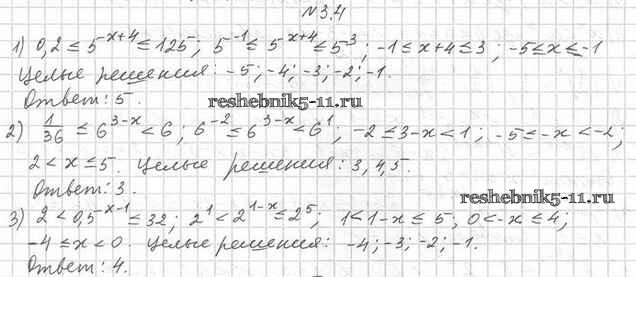 №3.4
1) 0,2 ≤ 5^{x+4} ≤ 125; 5^{-1} ≤ 5^{x+4} ≤ 5^3; -1 ≤ x+4 ≤ 3; -5 ≤ x ≤ -1
Целые решения: -5; -4; -3; -2; -1.
Ответ: 5.
reshebnik5-11.ru
2) 1/36 ≤ 6^{3-x} < 6; 6^{-2} ≤ 6^{3-x} < 6^1; -2 ≤ 3-x < 1; -5 ≤ -x < -2;
2 < x ≤ 5. Целые решения: 3, 4, 5.
Ответ: 3.
reshebnik5-11.ru
3) 2 < 0,5^{x-1} ≤ 32; 2^1 < 2^{1-x} ≤ 2^5; 1 < 1-x ≤ 5; 0 < -x ≤ 4;
-4 ≤ x < 0. Целые решения: -4; -3; -2; -1.
Ответ: 4.